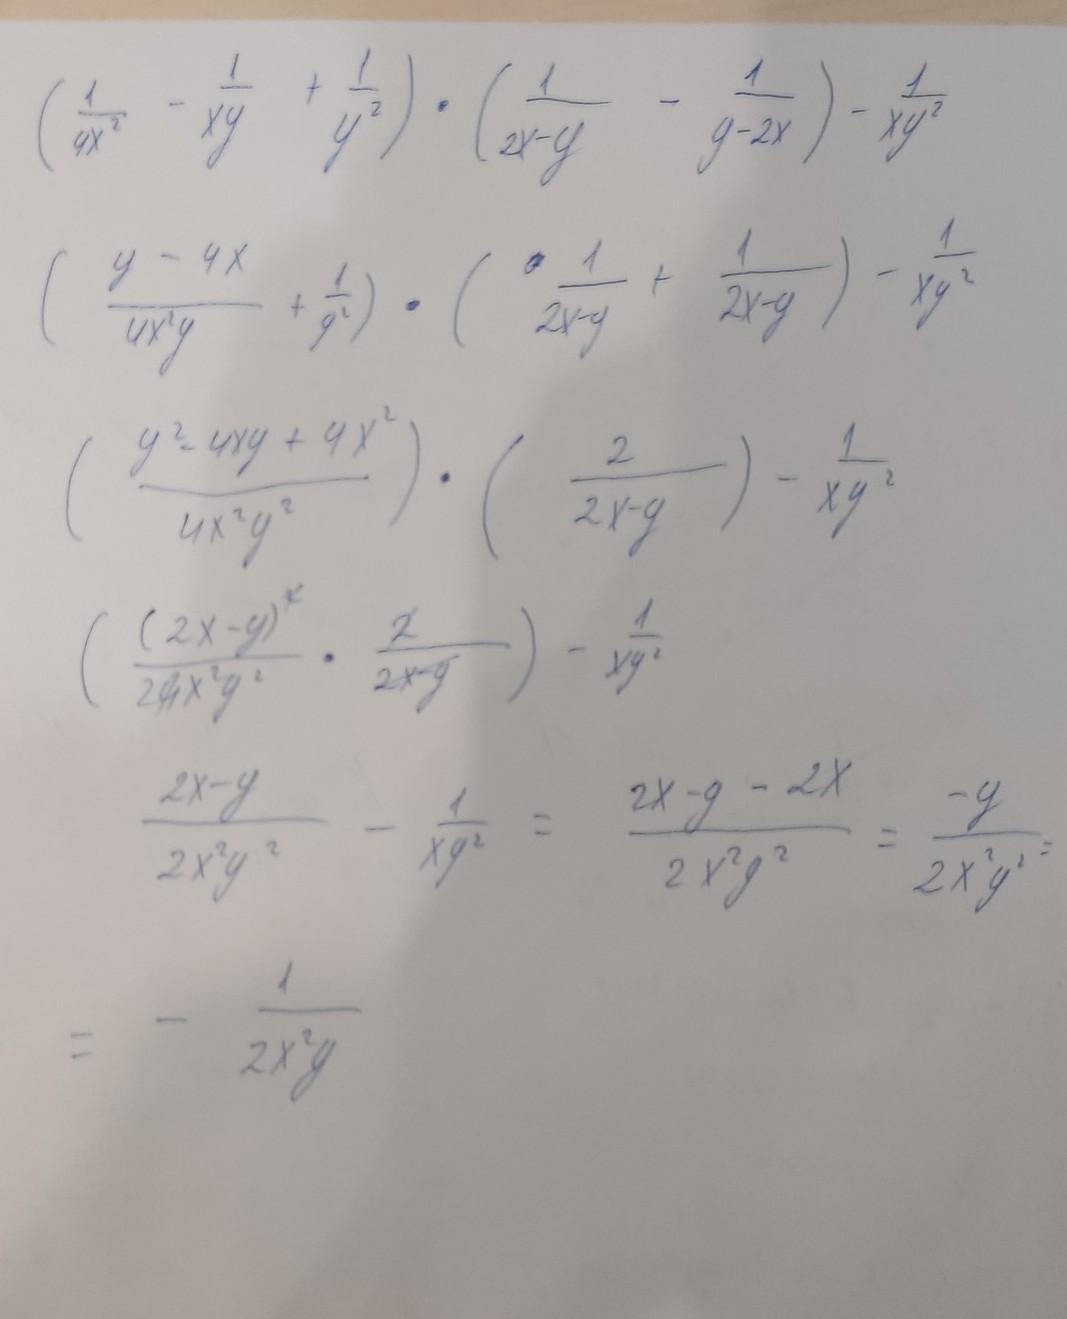 (1/4x² - 1/xy + 1/y²) · (1/2x-y - 1/y-2x) - 1/xy²
(y - 4x/4x²y + 1/y²) · (1/2x-y + 1/2x-y) - 1/xy²
(y² - 4xy + 4x²/4x²y²) · (2/2x-y) - 1/xy²
((2x-y)²/24x²y² · 2/2x-y) - 1/xy²
2x-y/2x²y² - 1/xy² = 2x-y-2x/2x²y² = -y/2x²y² =
= - 1/2x²y